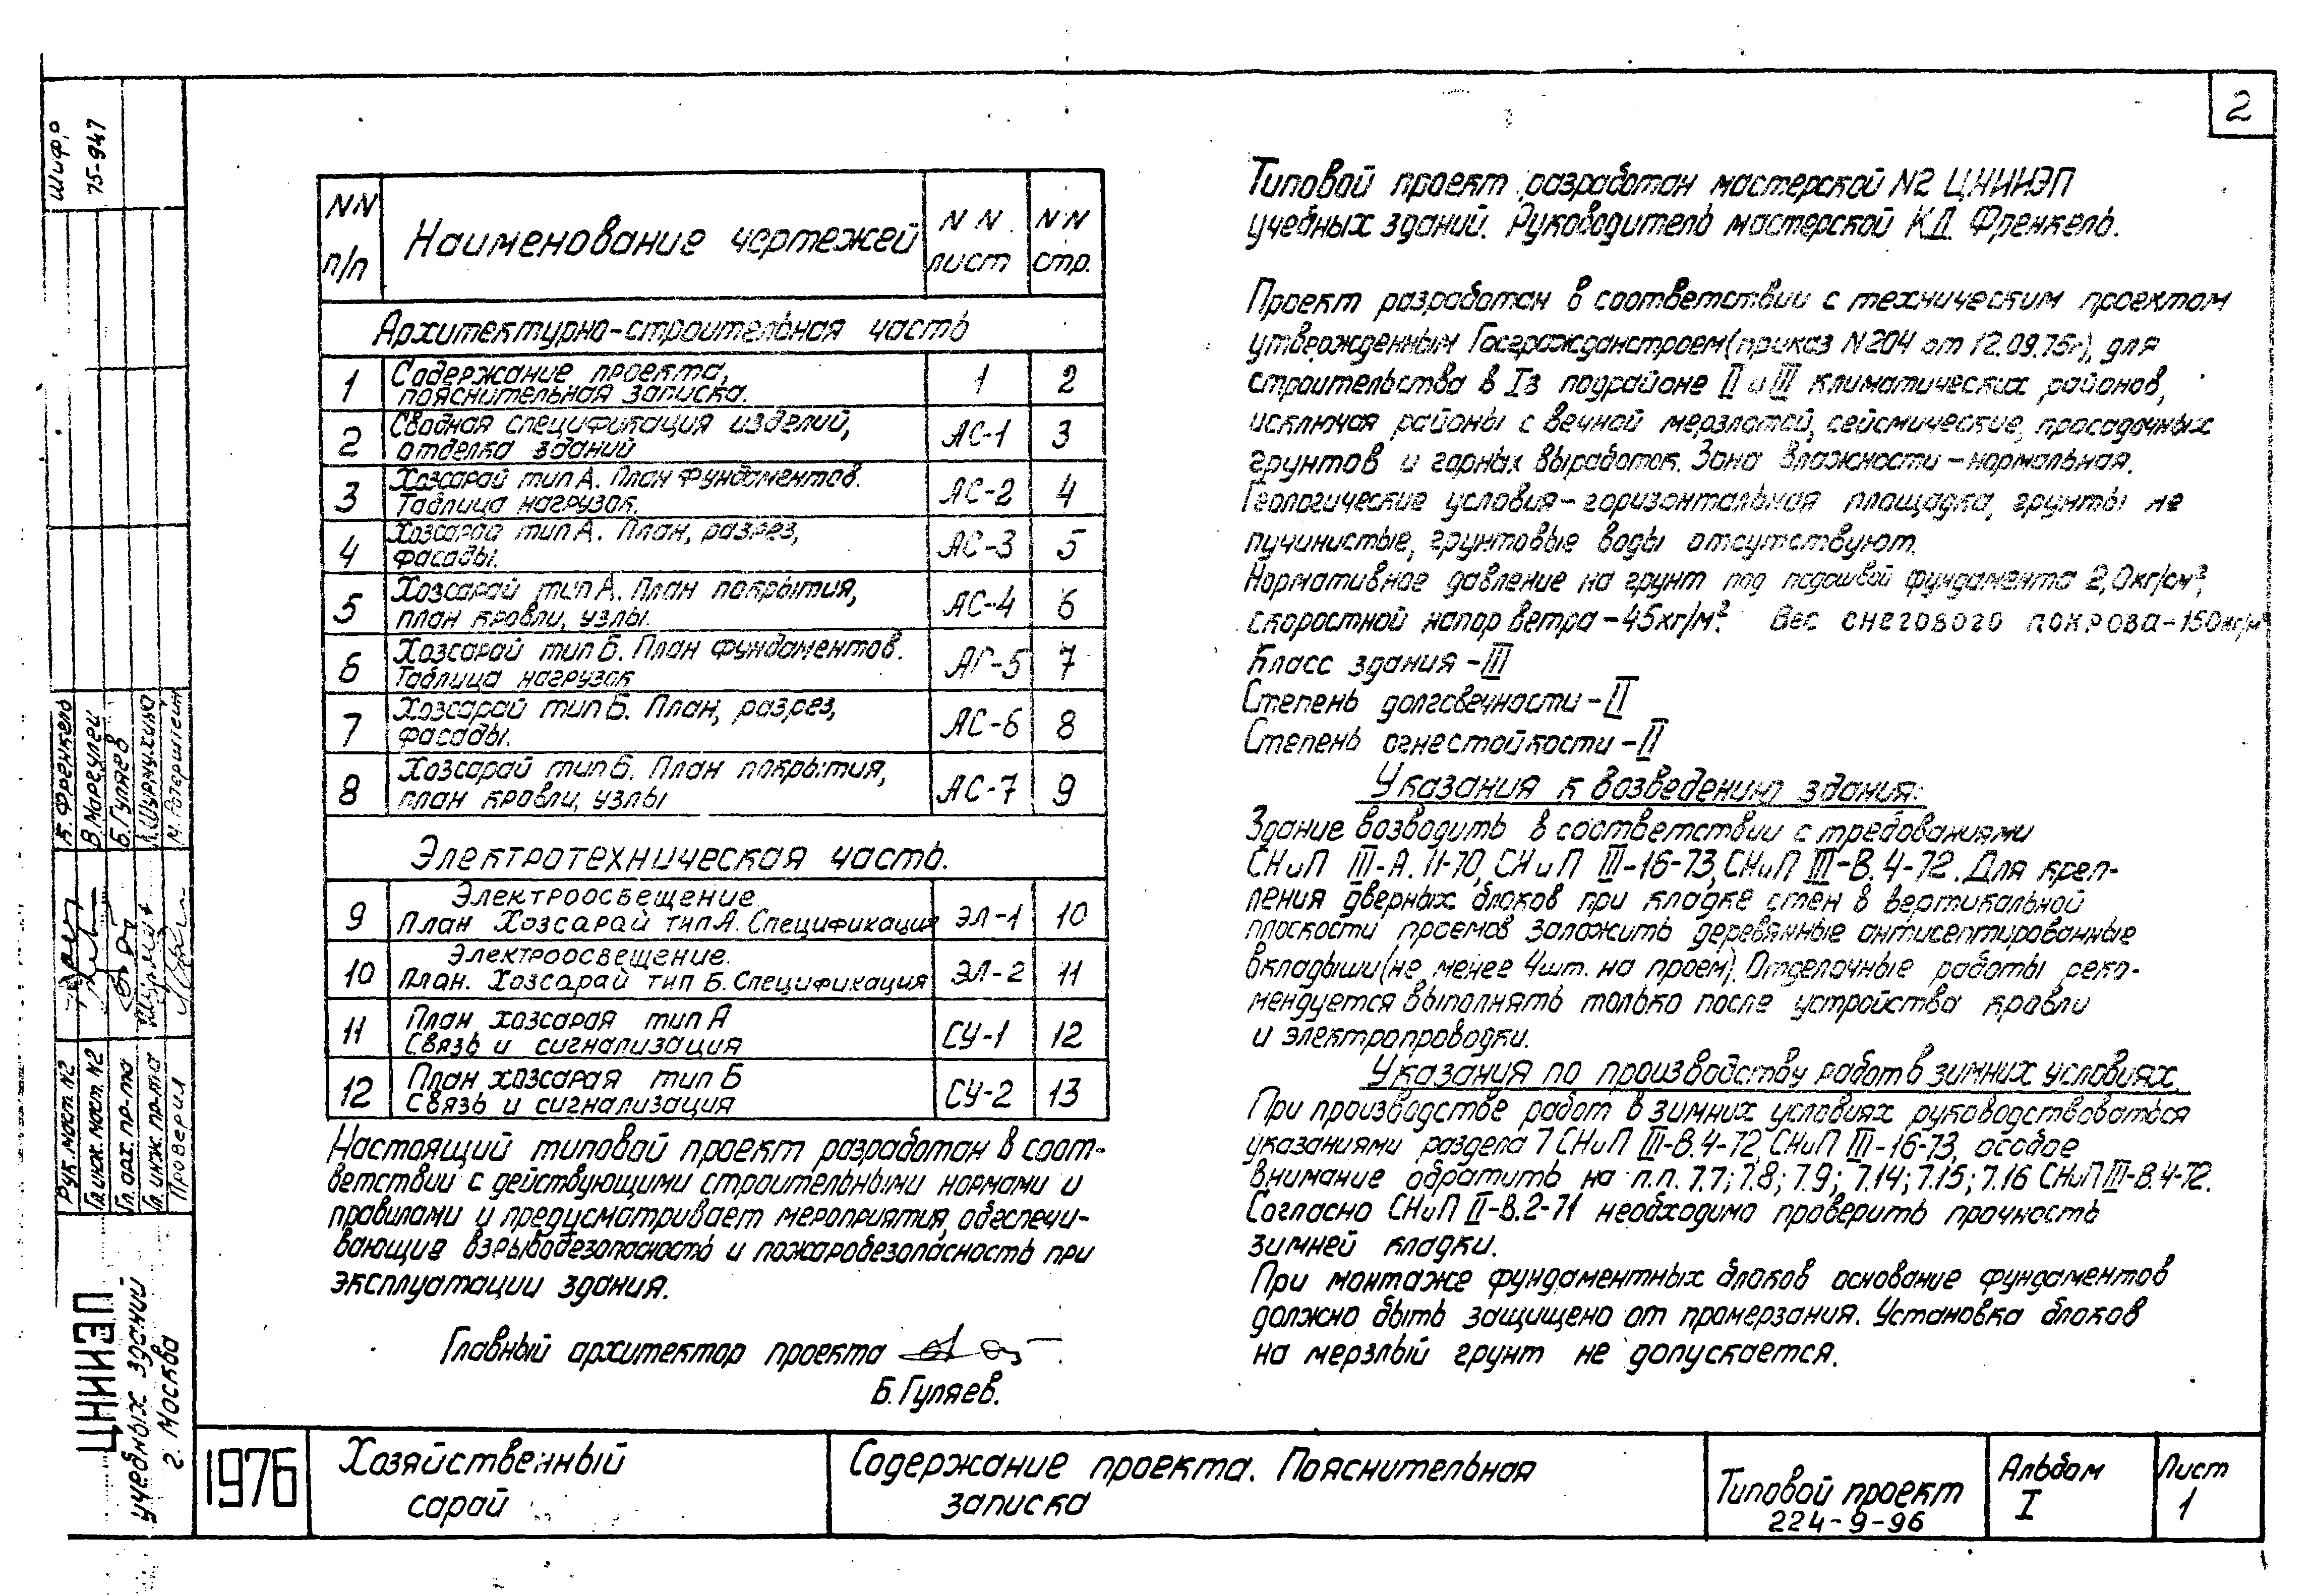 2
Шифр
75-947
NN п/п
Наименование чертежей
NN лист
NN стр.
Архитектурно-строительная часть
1 Содержание проекта, 1 2
пояснительная записка.
2 Сводная спецификация изделий, АС-1 3
отделка зданий
3 Хозсарай тип А. План фундаментов. АС-2 4
Таблица нагрузок.
4 Хозсарай тип А. План, разрез, АС-3 5
фасады.
5 Хозсарай тип А. План покрытия, АС-4 6
план кровли, узлы.
6 Хозсарай тип Б. План фундаментов. АС-5 7
Таблица нагрузок
7 Хозсарай тип Б. План, разрез, АС-6 8
фасады.
8 Хозсарай тип Б. План покрытия, АС-7 9
план кровли, узлы
Электротехническая часть.
9 Электроосвещение ЭЛ-1 10
План Хозсарай тип А. Спецификация
10 Электроосвещение. ЭЛ-2 11
План. Хозсарай тип Б. Спецификация
11 План хозсарая тип А СУ-1 12
Связь и сигнализация
12 План хозсарая тип Б СУ-2 13
Связь и сигнализация
Настоящий типовой проект разработан в соот-
ветствии с действующими строительными нормами и
правилами и предусматривает мероприятия, обеспечи-
вающие взрывобезопасность и пожаробезопасность при
эксплуатации здания.
Главный архитектор проекта
Б. Гуляев.
Типовой проект разработан мастерской N2 ЦНИИЭП
учебных зданий. Руководитель мастерской К.Д. Френкель.
Проект разработан в соответствии с техническим проектом
утвержденным Госгражданстроем (приказ N204 от 12.09.75г), для
строительства в Iв подрайоне II и III климатических районов,
исключая районы с вечной мерзлотой, сейсмические, просадочных
грунтов и горных выработок. Зона влажности - нормальная.
Геологические условия - горизонтальная площадка, грунты не
пучинистые, грунтовые воды отсутствуют.
Нормативное давление на грунт под подошвой фундамента 2,0кг/см²,
скоростной напор ветра - 45кг/м². Вес снегового покрова - 150кг/м²
Класс здания - III
Степень долговечности - II
Степень огнестойкости - II
Указания к возведению здания:
Здание возводить в соответствии с требованиями
СНиП III-А. 11-70, СНиП III-16-73, СНиП III-В. 4-72. Для креп-
ления дверных блоков при кладке стен в вертикальной
плоскости проемов заложить деревянные антисептированные
вкладыши (не менее 4шт. на проем). Отделочные работы реко-
мендуется выполнять только после устройства кровли
и электропроводки.
Указания по производству работ в зимних условиях
При производстве работ в зимних условиях руководствоваться
указаниями раздела 7 СНиП III-В. 4-72, СНиП III-16-73, особое
внимание обратить на п.п. 7.7; 7.8; 7.9; 7.14; 7.15; 7.16 СНиП III-В. 4-72.
Согласно СНиП II-В.2-71 необходимо проверить прочность
зимней кладки.
При монтаже фундаментных блоков основание фундаментов
должно быть защищено от промерзания. Установка блоков
на мерзлый грунт не допускается.
Рук. маст. N2 К. Френкель
Гл. инж. маст. N2 В. Маргулец
Гл. арх. пр-та Б. Гуляев
Гл. инж. пр-та
Проверил
ЦНИИЭП
учебных зданий
г. Москва
1976
Хозяйственный
сарай
Содержание проекта. Пояснительная
записка
Типовой проект
224-9-96
Альбом
I
Лист
1